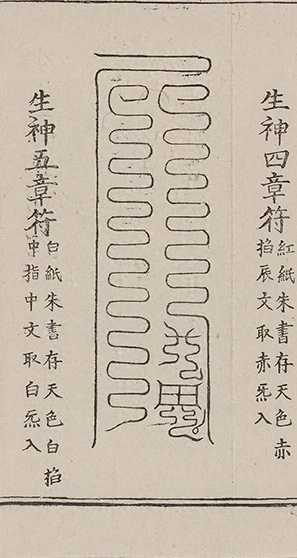 生神四章符
紅紙朱書存天色赤
掐辰文取赤炁入
生神五章符
白紙朱書存天色白掐
中指中文取白炁入